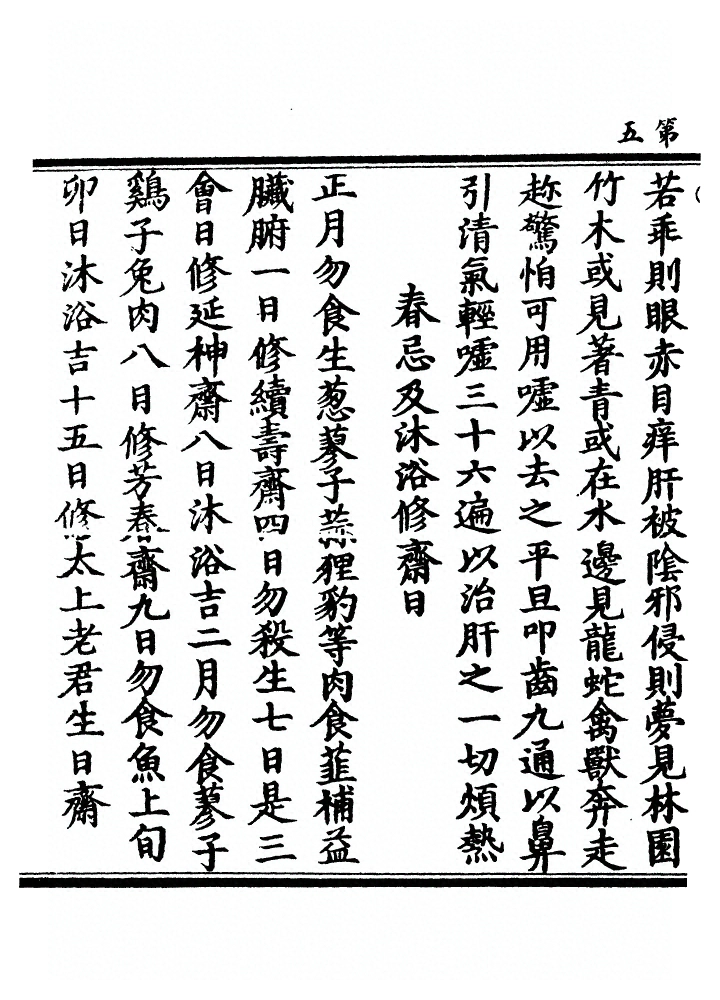 第五
若乖則眼赤目痒肝被陰邪侵則夢見林園
竹木或見著青或在水邊見龍蛇禽獸奔走
趂驚怕可用噓以去之平旦叩齒九通以鼻
引清氣輕噓三十六遍以治肝之一切煩熱
春忌及沐浴修齋日
正月勿食生葱蓼子蒜狸豹等肉食韮補益
臟腑一日修續壽齋四日勿殺生七日是三
會日修延神齋八日沐浴吉二月勿食蓼子
鷄子兔肉八日修芳春齋九日勿食魚上旬
卯日沐浴吉十五日修太上老君生日齋